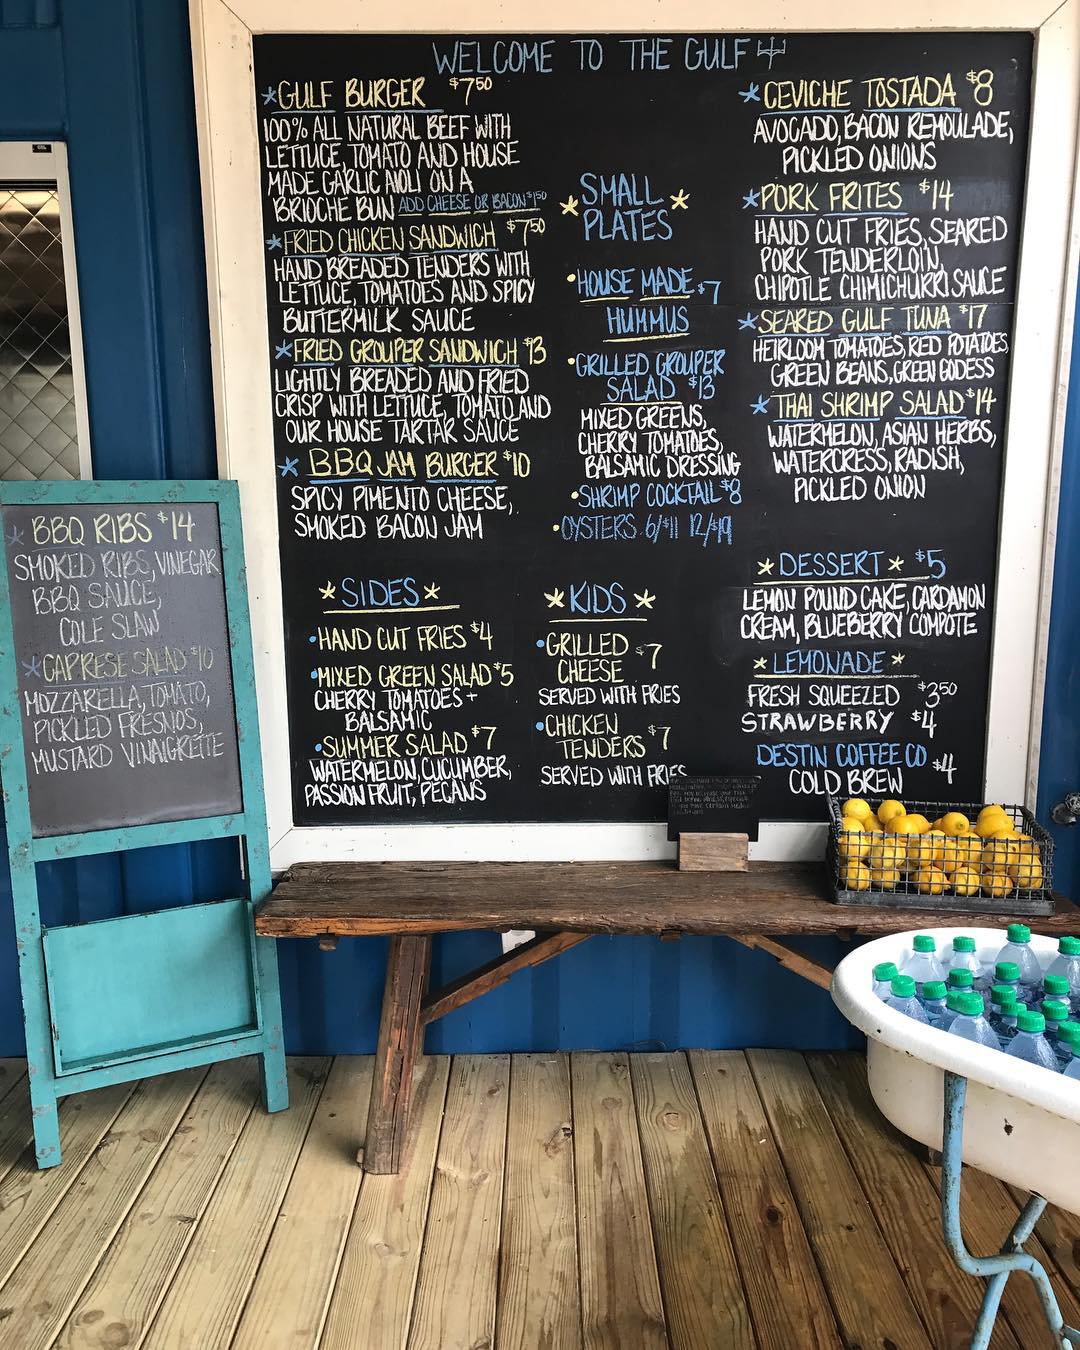 WELCOME TO THE GULF
*GULF BURGER $7.50
100% ALL NATURAL BEEF WITH
LETTUCE, TOMATO AND HOUSE
MADE GARLIC AIOLI ON A
BRIOCHE BUN ADD CHEESE OR BACON $1.50
*FRIED CHICKEN SANDWICH $7.50
HAND BREADED TENDERS WITH
LETTUCE, TOMATOES AND SPICY
BUTTERMILK SAUCE
*FRIED GROUPER SANDWICH $13
LIGHTLY BREADED AND FRIED
CRISP WITH LETTUCE, TOMATO AND
OUR HOUSE TARTAR SAUCE
*BBQ JAM BURGER $10
SPICY PIMENTO CHEESE,
SMOKED BACON JAM
*SIDES*
•HAND CUT FRIES $4
•MIXED GREEN SALAD $5
CHERRY TOMATOES +
BALSAMIC
•SUMMER SALAD $7
WATERMELON, CUCUMBER,
PASSION FRUIT, PECANS
*SMALL
PLATES*
•HOUSE MADE $7
HUMMUS
•GRILLED GROUPER
SALAD $13
MIXED GREENS,
CHERRY TOMATOES,
BALSAMIC DRESSING
•SHRIMP COCKTAIL $8
•OYSTERS 6/$11 12/$19
*KIDS*
•GRILLED
CHEESE $7
SERVED WITH FRIES
•CHICKEN
TENDERS $7
SERVED WITH FRIES
*CEVICHE TOSTADA $8
AVOCADO, BACON REMOULADE,
PICKLED ONIONS
*PORK FRITES $14
HAND CUT FRIES, SEARED
PORK TENDERLOIN,
CHIPOTLE CHIMICHURRI SAUCE
*SEARED GULF TUNA $17
HEIRLOOM TOMATOES, RED POTATOES,
GREEN BEANS, GREEN GODESS
*THAI SHRIMP SALAD $14
WATERMELON, ASIAN HERBS,
WATERCRESS, RADISH,
PICKLED ONION
*DESSERT* $5
LEMON POUND CAKE, CARDAMON
CREAM, BLUEBERRY COMPOTE
*LEMONADE*
FRESH SQUEEZED $3.50
STRAWBERRY $4
DESTIN COFFEE CO $4
COLD BREW
*BBQ RIBS $14
SMOKED RIBS, VINEGAR
BBQ SAUCE,
COLE SLAW
*CAPRESE SALAD $10
MOZZARELLA, TOMATO,
PICKLED FRESNOS,
MUSTARD VINAIGRETTE